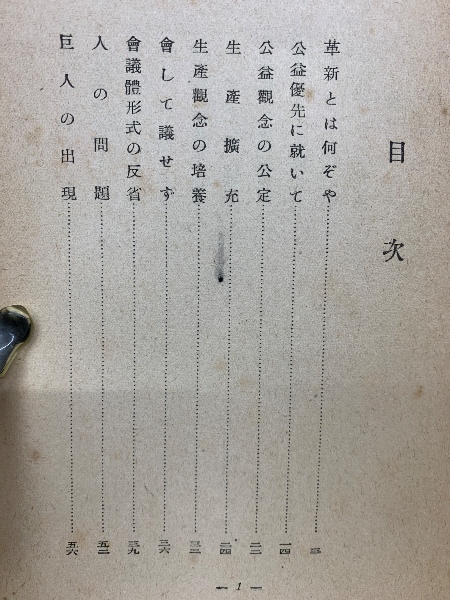 目次
革新とは何ぞや……三
公益優先に就いて……一四
公益觀念の公定……二二
生産擴充……二四
生産觀念の培養……三三
會して議せず……三六
會議體形式の反省……三九
人の問題……五二
巨人の出現……五六
— 1 —